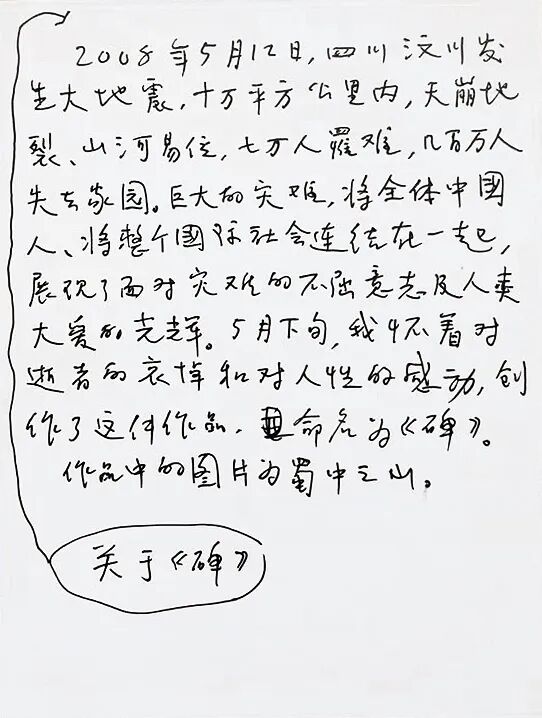 2008年5月12日,四川汶川发
生大地震,十万平方公里内,天崩地
裂、山河易位,七万人羅难,几百万人
失去家园。巨大的灾难,将全体中國
人、将整个國际社会连结在一起,
展现了面对灾难的不屈意志及人类
大爱的光辉。5月下旬,我怀着对
逝者的哀悼和对人性的感动,创
作了这件作品,命名为《碑》。
作品中的图片为蜀中之山。
关于《碑》